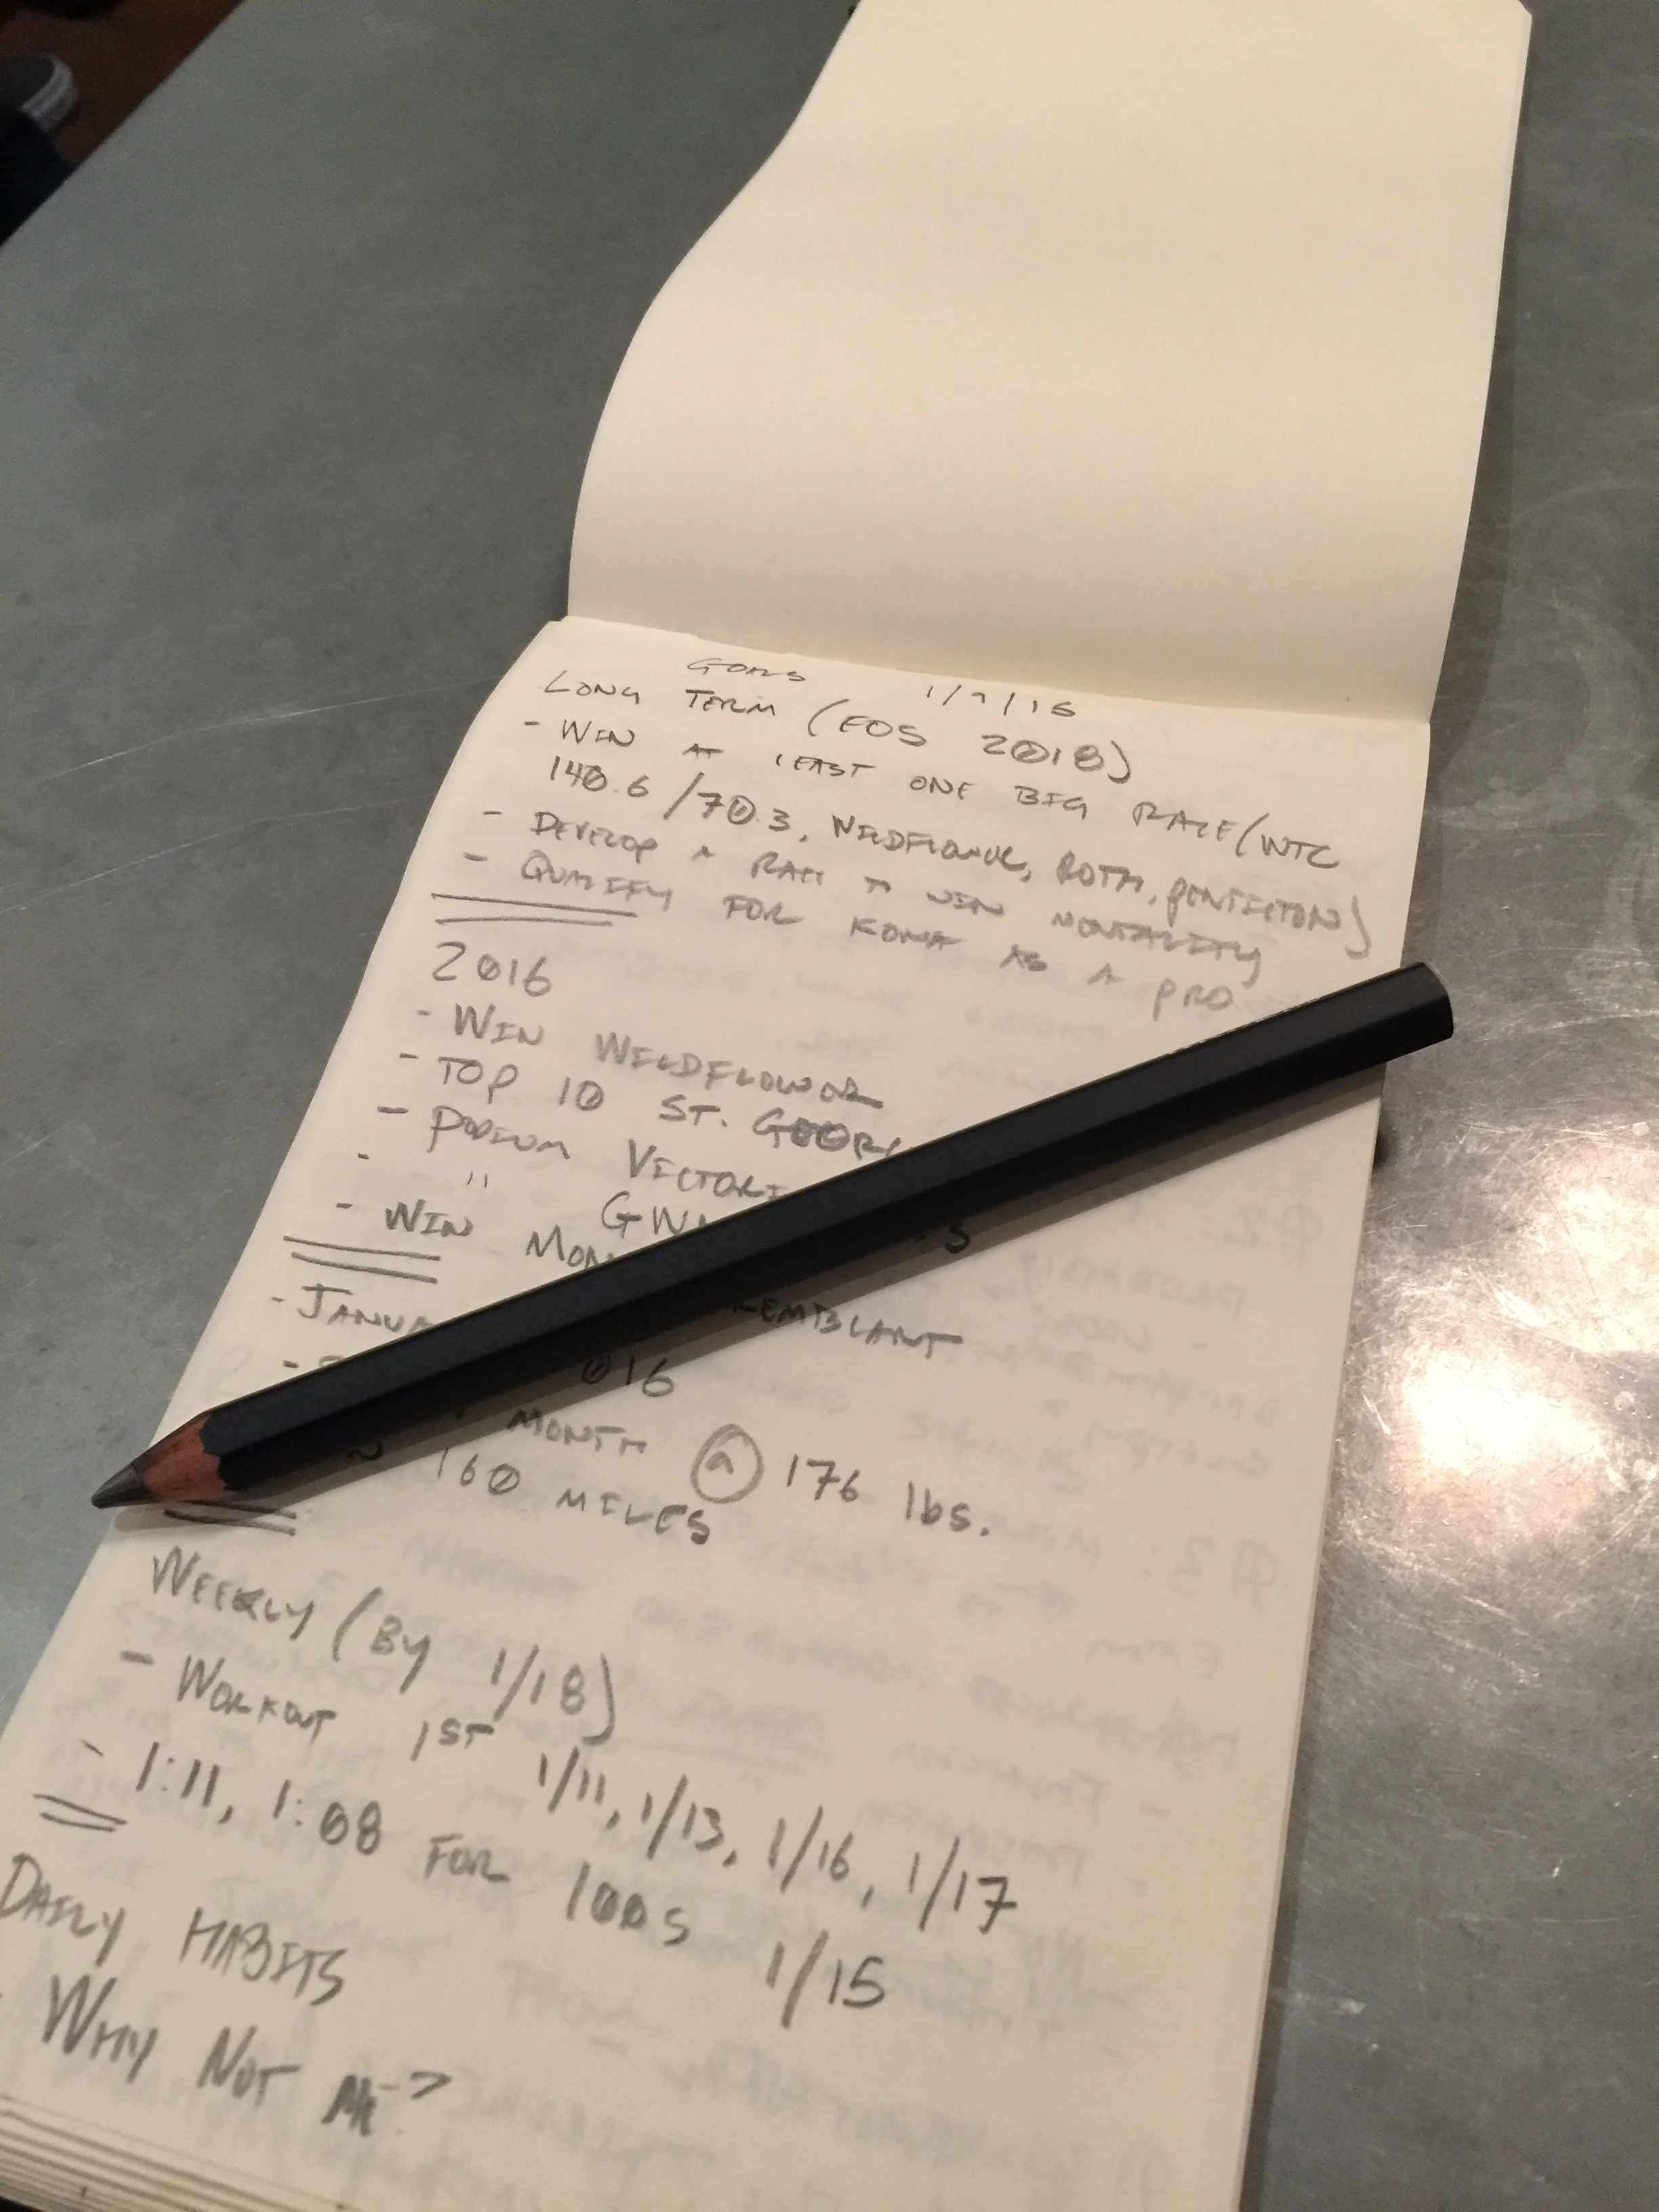 GOALS 1/9/16
LONG TERM (EOS 2018)
- WIN AT LEAST ONE BIG RACE (WTC
140.6 / 70.3, WILDFLOWER, ROTH, PENTICTON)
- DEVELOP A RACE TO WIN MENTALITY
- QUALIFY FOR KONA AS A PRO
2016
- WIN WILDFLOWER
- TOP 10 ST. GEORG
- PODIUM VICTORI
- " GW S
- WIN MON REMBLANT
- JANUA 016
- MONTH @ 176 lbs.
N 160 MILES
WEEKLY (BY 1/18)
- WORKOUT 1ST 1/11, 1/13, 1/16, 1/17
- 1:11, 1:08 FOR 100S 1/15
DAILY HABITS
- WHY NOT ME?